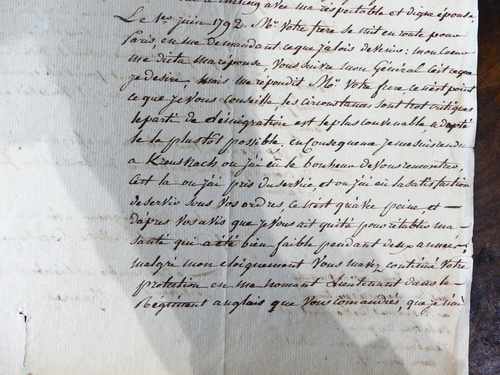 a Tining avec ma respectable et digne épouse
Le 1er juin 1792. Mr. Votre frere se mit en route pour
Paris, en me demandant ce que jalois devenir: mon Coeur
me dicta ma réponse, Vous suivre mon Général C'est ce que
je desire, Mais me répondit Mr. Votre frere ce n'est point
ce que je Vous conseille, les circonstances sont trop critiques
le parti de l'émigration est le plus convenable, & adopté
le le plustot possible, en Consequence je me suis rendu
a Kreusnach ou j'ai eu le bonheur de Vous rencontrer,
C'est la ou j'ai pris du service, et ou j'ai eu la satisfaction
de servir sous Vos ordres, ce n'est qu'avec peine, et
d'après Vos avis que je Vous ait quité pour rétablir ma
santé qui a été bien faible pendant deux années
malgré mon eloignement Vous m'avez continué Votre
protection en me nomant Lieutenant dans le
Régiment anglais que Vous comandiés, que je n'ai